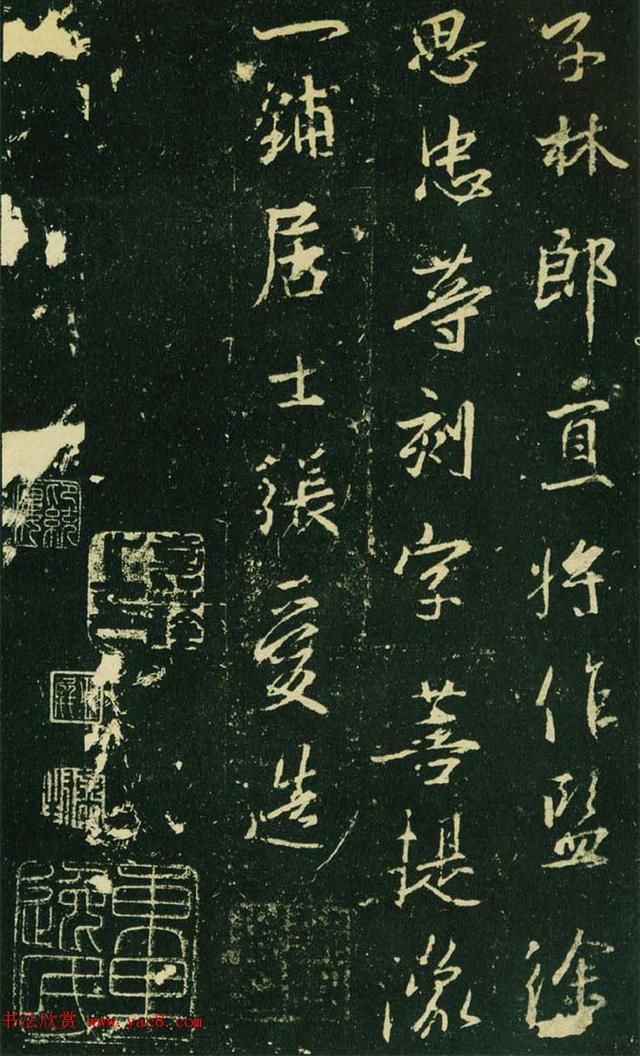 子林郎直将作監徐
思忠等刻字菩提像
一鋪居士張愛造
书法欣赏 www.yac8.com